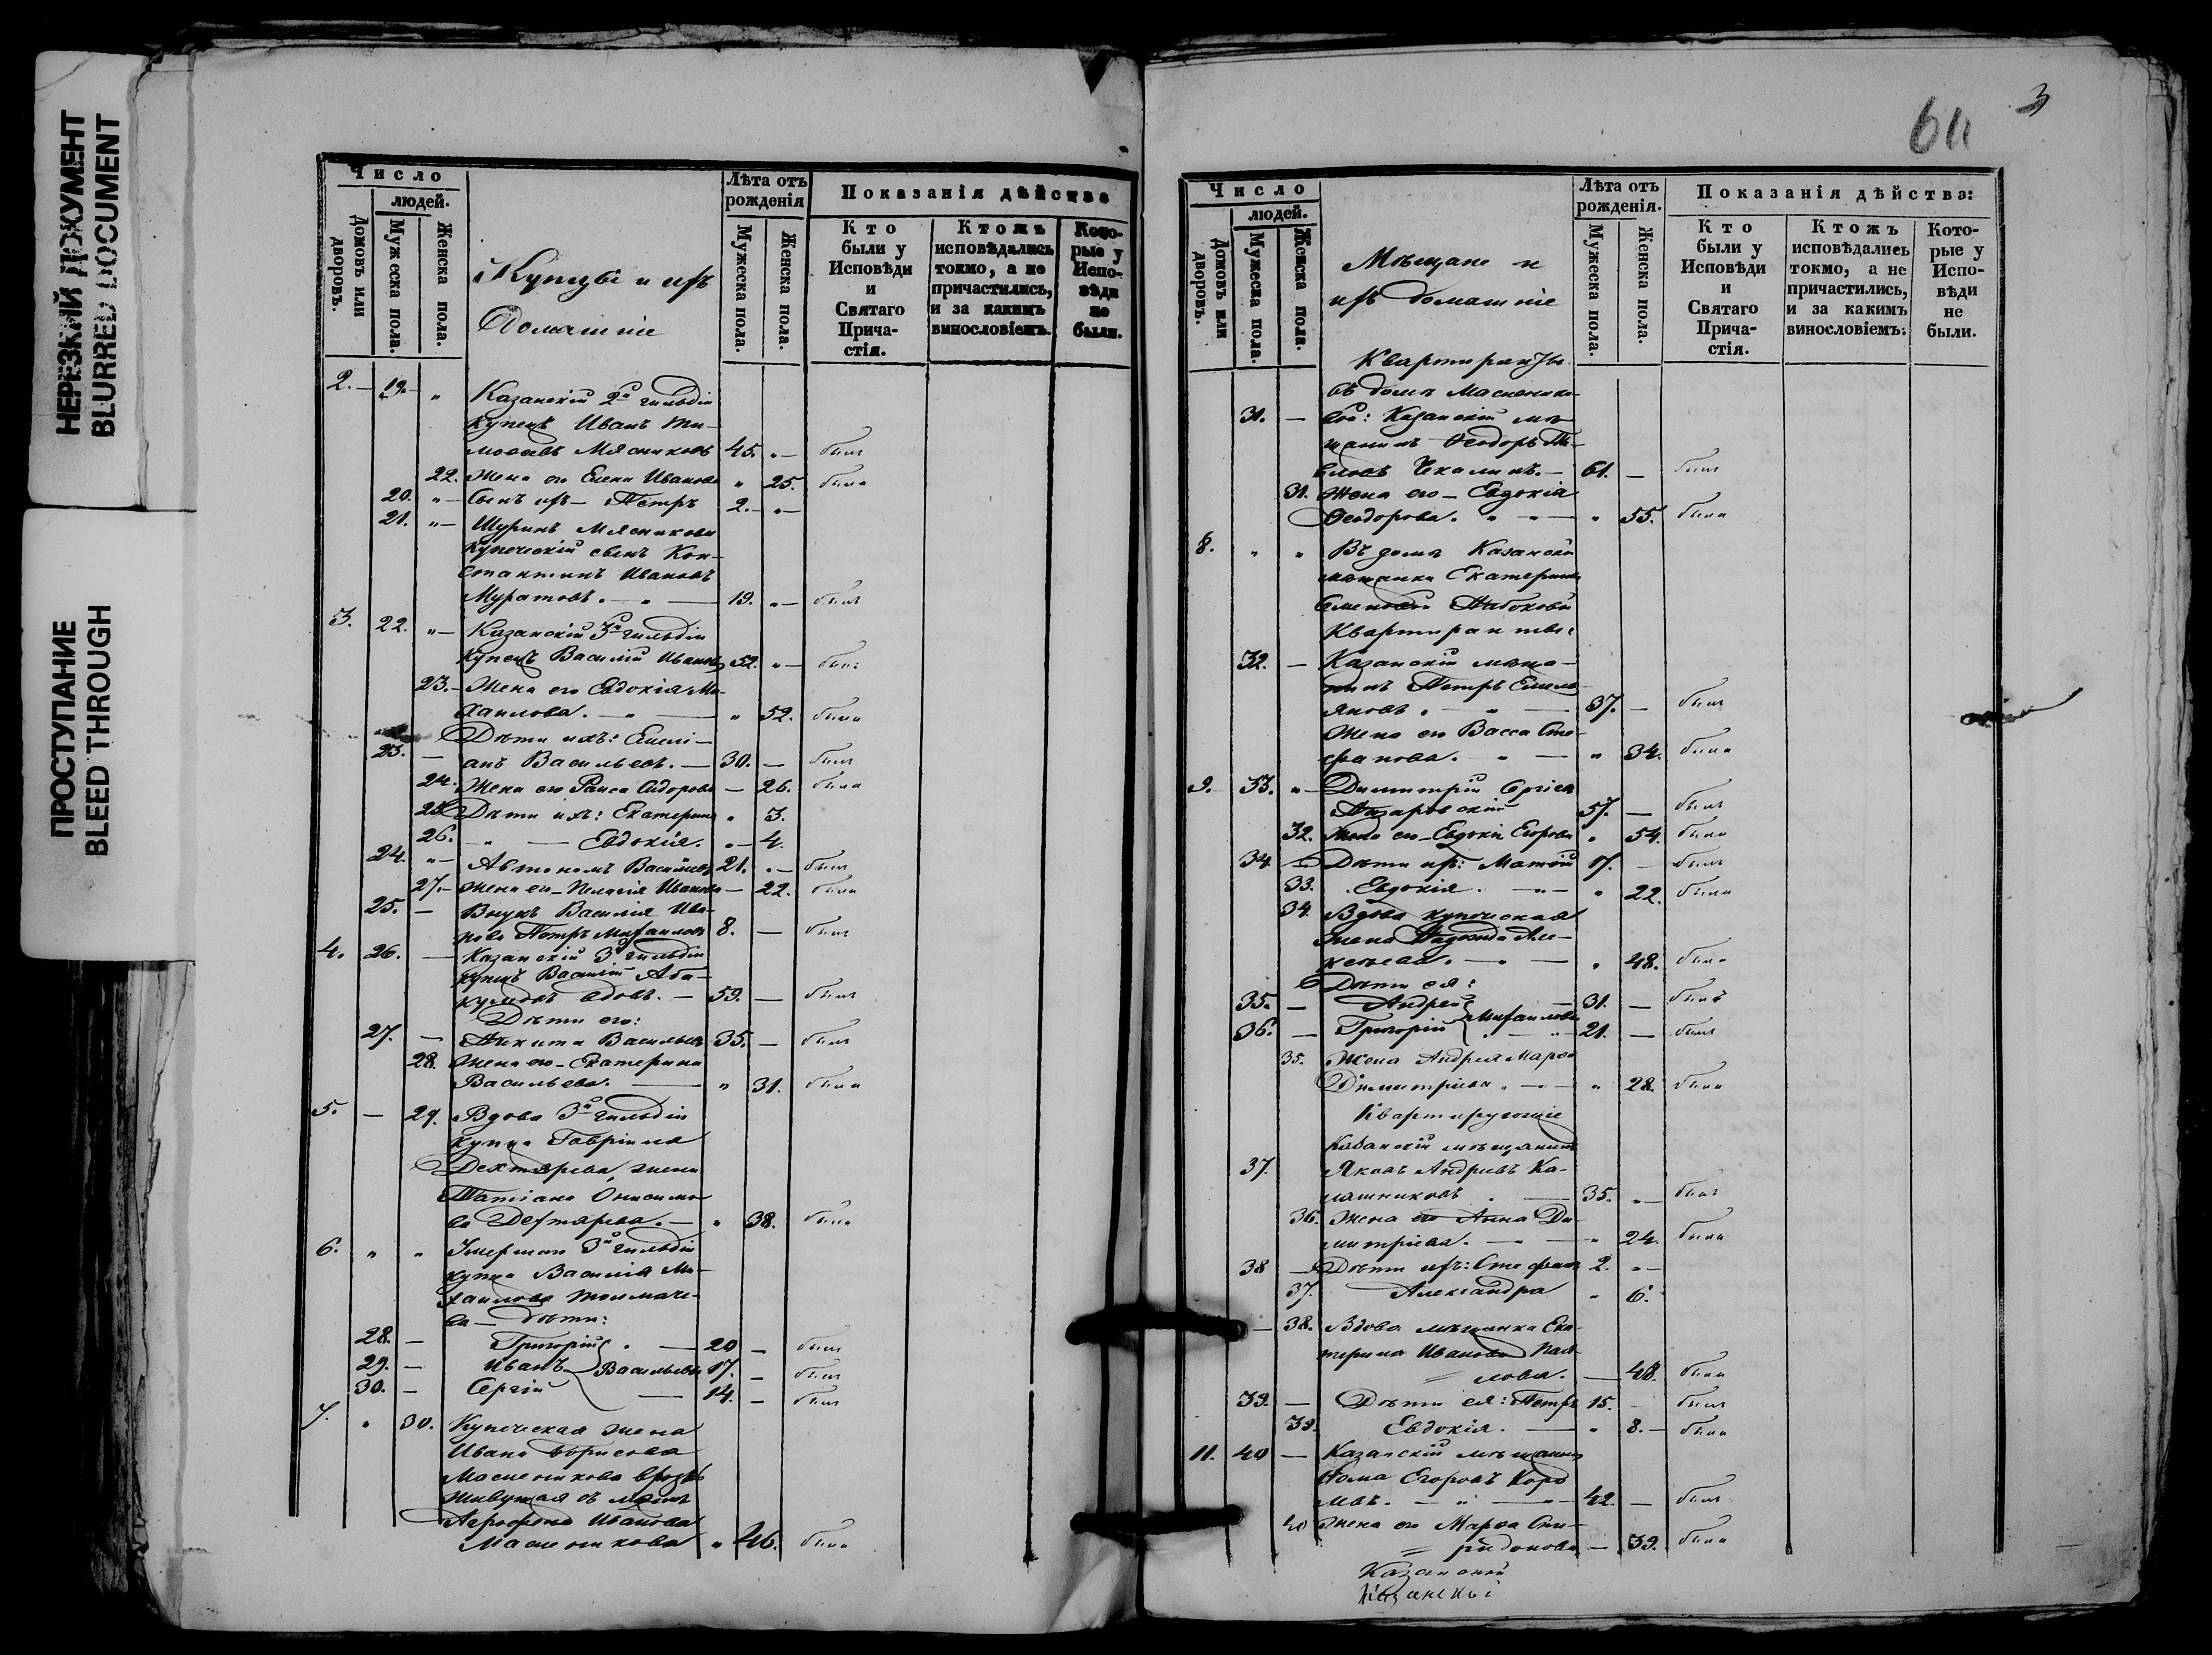 НЕРЕЗКИЙ ДОКУМЕНТ
BLURRED DOCUMENT
ПРОСТУПАНИЕ
BLEED THROUGH
Число
людей.
Домовъ или дворовъ.
Мужеска пола.
Женска пола.
Купцы и ихъ
Домашніе
Лѣта отъ рожденія
Мужеска пола.
Женска пола.
Показанія дѣйства
Кто были у Исповѣди и Святаго Причастія.
Ктожъ исповѣдались токмо, а не причастились, и за какимъ винословіемъ.
Которые у Исповѣди не были.
2. — 19. „ Казанскій 2й гильдіи
купецъ Иванъ Ти-
моѳеевъ Мясниковъ 45. „ — былъ
22. Жена его Елена Иванова „ 25. была
20. „ — Сынъ ихъ — Петръ 2. „ —
21. „ — Шуринъ Мясникова
купеческій сынъ Кон-
стантинъ Ивановъ
Муратовъ. — „ — 19. „ — былъ
3. 22. „ — Казанскій 3й гильдіи
купецъ Василій Ивановъ 52. „ — былъ
23. — Жена его Евдокія Ми-
хаилова. — „ — „ 52. была
Дѣти ихъ: Емели-
23. — анъ Васильевъ. — 30. — былъ
24. Жена его Раиса Сидорова — 26. была
25. Дѣти ихъ: Екатерина „ 3.
26. „ — Евдокія. „ — 4.
24. „ — Автономъ Васильевъ 21. „ — былъ
27. — Жена его — Пелагія Иванова — 22. была
25. — Внукъ Василія Ива-
нова Петръ Михаиловъ 8. — былъ
4. 26. — Казанскій 3й гильдіи
купецъ Василій Аба-
кумовъ вдовъ. — 59. — былъ
Дѣти его:
27. — Никита Васильевъ 35. — былъ
28. Жена его — Екатерина
Васильева. — „ 31. была
5. — 29. Вдова 3й гильдіи
купца Гавріила
Дехтярева, жена
Татіана Онисимо-
ва Дехтярева. — „ 38. была
6. „ „ Умершаго 3й гильдіи
купца Василія Ми-
хаилова Толмаче-
ва — дѣти:
28. — Григорій . — 20 — былъ
29. — Иванъ Васильевы 17. — былъ
30. — Сергій — 14. — былъ
7. „ 30. Купеческая жена
Ивана Борисова
Масленикова врозь
живущая съ мужемъ
Агрофена Иванова
Масленикова „ 46. была
3
Число
людей.
Домовъ или дворовъ.
Мужеска пола.
Женска пола.
Мѣщане и
ихъ домашніе
Лѣта отъ рожденія.
Мужеска пола.
Женска пола.
Показанія дѣйства:
Кто были у Исповѣди и Святаго Причастія.
Ктожъ исповѣдались токмо, а не причастились, и за какимъ винословіемъ:
Которые у Исповѣди не были.
Квартиранты
въ домѣ Маслянико-
31. — вой: Казанскій мѣ-
щанинъ Ѳеодоръ Па-
вловъ Чекалинъ. — 61. — былъ
31. Жена его — Евдокія
Ѳеодорова. „ „ — „ 55. была
8. „ „ Въ домѣ Казанской
мѣщанки Екатерины
Семеновой
Квартиранты:
32. — Казанскій мѣща-
нинъ Петръ Емель-
яновъ . — „ — 37. — былъ
Жена его Васса Сте-
фанова. „ — „ 34. была
9. — 33. „ — Димитрій Сергіевъ
Назаровскій 57. — былъ
32. Жена его — Евдокія Егорова „ 54. была
34 — Дѣти ихъ: Матѳій 17. — былъ
33. Евдокія. — „ — „ 22. была
34. Вдова купеческая
жена Надежда Але-
ксѣева. — „ — „ 48. была
Дѣти ея:
35. — Андрей — 31. — былъ
36. — Григорій Михаиловы „ — 21. — былъ
35. Жена Андрея Марѳа
Димитріева. — „ — „ 28. была
Квартирующіе
Казанскій мѣщанинъ
37. Яковъ Андреевъ Ка-
лашниковъ . — 35. „ — былъ
36. Жена его Анна Ди-
митріева. — „ — „ 24. была
38 — Дѣти ихъ: Стефанъ 2. „ —
37. Александра „ 6.
— 38. Вдова мѣщанка Ека-
терина Иванова Пав-
лова. — 48. была
39. — Дѣти ея: Петръ 15. — былъ
39. Евдокія. — „ 8. — была
11. 40 — Казанскій мѣщанинъ
Ѳома Егоровъ
— „ — „ — 42. — былъ
40 Жена его Марѳа Спи-
ридонова — 39. была
Казанскій
Казанскі